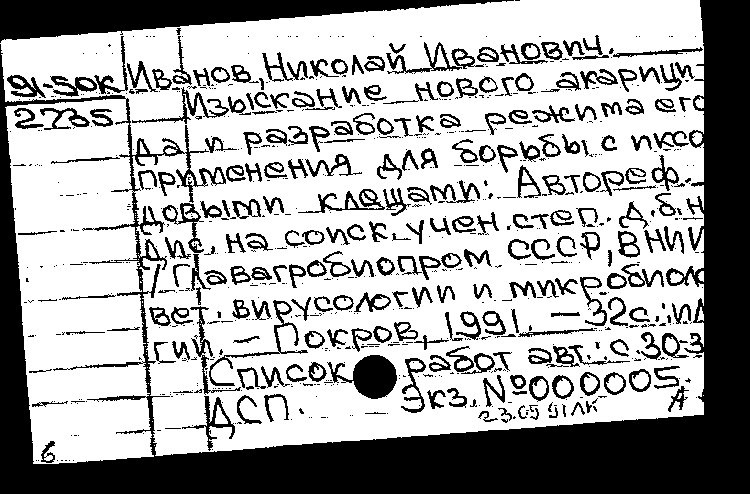 91-50К Иванов, Николай Иванович.
2735 Изыскание нового акарици-
да и разработка режима его
применения для борьбы с иксо
довыми клещами: Автореф.
дис. на соиск. учен. степ. д.б.н
/ Главагробиопром СССР, ВНИИ
вет. вирусологии и микробиоло
гии. - Покров, 1991. - 32с.: ил
Список работ авт.: с. 30-3
ДСП. Экз. №000005.
23.09 91ЛК А
6